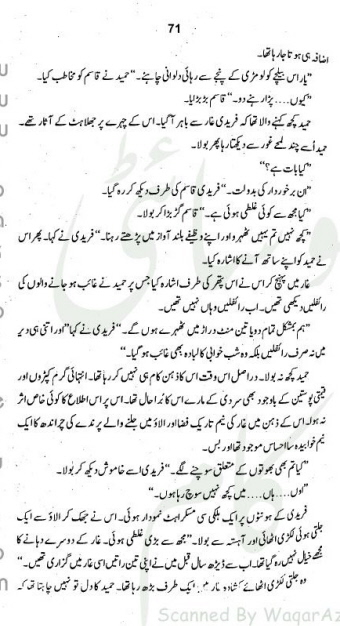 71
اضافہ ہی ہوتا جا رہا تھا۔
"یار اس بیچلے کو لومڑی کے پنجے سے رہائی دلوانی چاہئے۔" حمید نے قاسم کو مخاطب کیا۔
"کیوں.... پڑا رہنے دو۔" قاسم بڑبڑایا۔
حمید کچھ کہنے والا تھا کہ فریدی غار سے باہر آ گیا۔ اس کے چہرے پر جھلاہٹ کے آثار تھے۔
حمید اُسے چند لمحے غور سے دیکھتا رہا پھر بولا۔
"کیا بات ہے؟"
"ان برخوردار کی بدولت۔" فریدی قاسم کی طرف دیکھ کر رہ گیا۔
"کیا مجھ سے کوئی غلطی ہوئی ہے۔" قاسم گڑبڑا کر بولا۔
"کچھ نہیں تم یہیں ٹھہرو اور اپنے وظیفے بلند آواز میں پڑھتے رہنا۔" فریدی نے کہا۔ پھر اس
نے حمید کو اپنے ساتھ آنے کا اشارہ کیا۔
غار میں پہنچ کر اس نے اس پتھر کی طرف اشارہ کیا جس پر حمید نے غائب ہو جانے والوں کی
رائفلیں دیکھی تھیں۔ اب رائفلیں وہاں نہیں تھیں۔
"ہم بمشکل تمام دو یا تین منٹ دراڑ میں ٹھہرے ہوں گے۔" فریدی نے کہا "اور اتنی ہی دیر
میں نہ صرف رائفلیں بلکہ وہ شب خوابی کا لبادہ بھی غائب ہو گیا۔"
حمید کچھ نہ بولا۔ دراصل اس وقت اس کا ذہن کام ہی نہیں کر رہا تھا۔ انتہائی گرم کپڑوں اور
قیمتی پوستین کے باوجود بھی سردی کے مارے اس کا بُرا حال تھا۔ اس پر اس اطلاع کا کوئی خاص اثر
نہ ہوا۔ اس کے ذہن میں غار کی نیم تاریک فضا اور الاؤ میں جلنے والے پرندے کی چراندھ کا ایک
نیم خوابیدہ سا احساس موجود تھا اور بس۔
"کیا تم بھی بھوتوں کے متعلق سوچنے لگے۔" فریدی اسے خاموش دیکھ کر بولا۔
"اوں.... ہاں.... میں کچھ نہیں سوچ رہا ہوں۔"
فریدی کے ہونٹوں پر ایک ہلکی سی مسکراہٹ نمودار ہوئی۔ اس نے جھک کر الاؤ سے ایک
جلتی ہوئی لکڑی اٹھائی اور آہستہ سے بولا۔ "مجھ سے بڑی غلطی ہوئی۔ غار کے دوسرے دہانے کا
مجھے خیال نہیں رہ گیا تھا۔ اب سے ڈیڑھ سال قبل میں نے اپنی تین راتیں اسی غار میں گزاری تھیں۔"
وہ جلتی لکڑی اٹھائے ایک طرف بڑھ رہا تھا۔ حمید کا دل تو نہیں چاہتا تھا کہ
Scanned By WaqarAz